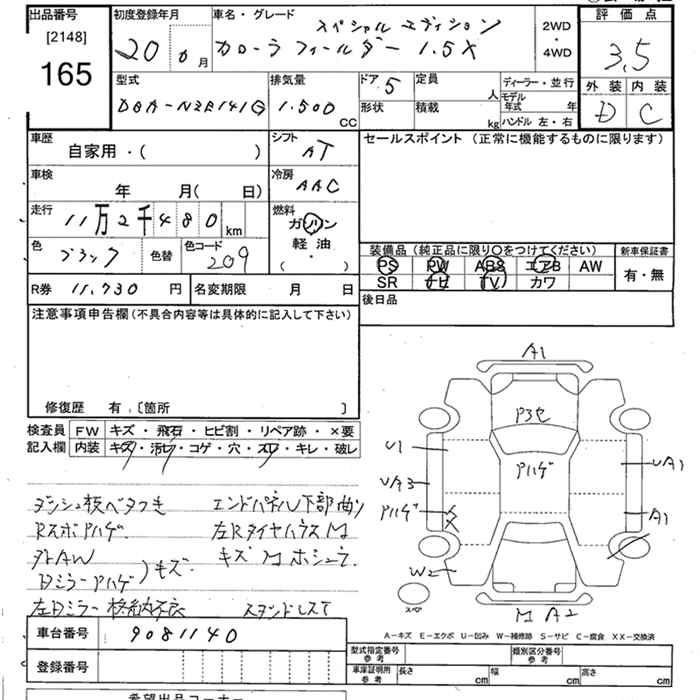 出品番号
[2148]
165
初度登録年月
20 6 月
車名・グレード
スペシャル エディション
カローラ フィールダー 1.5X
2WD
・
4WD
評価点
3.5
外装 内装
D C
型式
DBA-NZE141G
排気量
1.500 CC
ドア 5
形状
定員 人
積載 kg
ディーラー・並行
モデル年式 年
ハンドル 左・右
車歴
自家用・( )
シフト
AT
セールスポイント (正常に機能するものに限ります)
車検
年 月( 日)
冷房
AAC
走行
11万2千480 km
燃料
ガソリン
軽油
( )
色
ブラック
色替
色コード
209
装備品 (純正品に限り○をつけてください)
PS PW ABS エアB AW
SR ナビ TV カワ
新車保証書
有・無
R券 11.730 円
名変期限 月 日
後日品
注意事項申告欄 (不具合内容等は具体的に記入して下さい)
修復歴 有:〔箇所 〕
検査員記入欄
FW キズ・飛石・ヒビ割・リペア跡・×要
内装 キズ・汚レ・コゲ・穴・スレ・キレ・破レ
ダッシュ板ベタつき エンドパネル下部曲り
Rスポアハゲ 左Rタイヤハウス M
外AW キズ M ホシュウ
Dミラーアハゲ )もキズ
左Dミラー格納不良 スタンドレス丁
A1
P3セ
アハゲ
U1
UA3
アハゲ
W2
UA1
A1
スペ
M A2
A-キズ E-エクボ U-凹み W-補修跡 S-サビ C-腐食 XX-交換済
車台番号 9081140
登録番号
型式指定番号 参考
類別区分番号 参考
車庫証明用 参考
長さ cm
幅 cm
高さ cm
希望出品コーナー